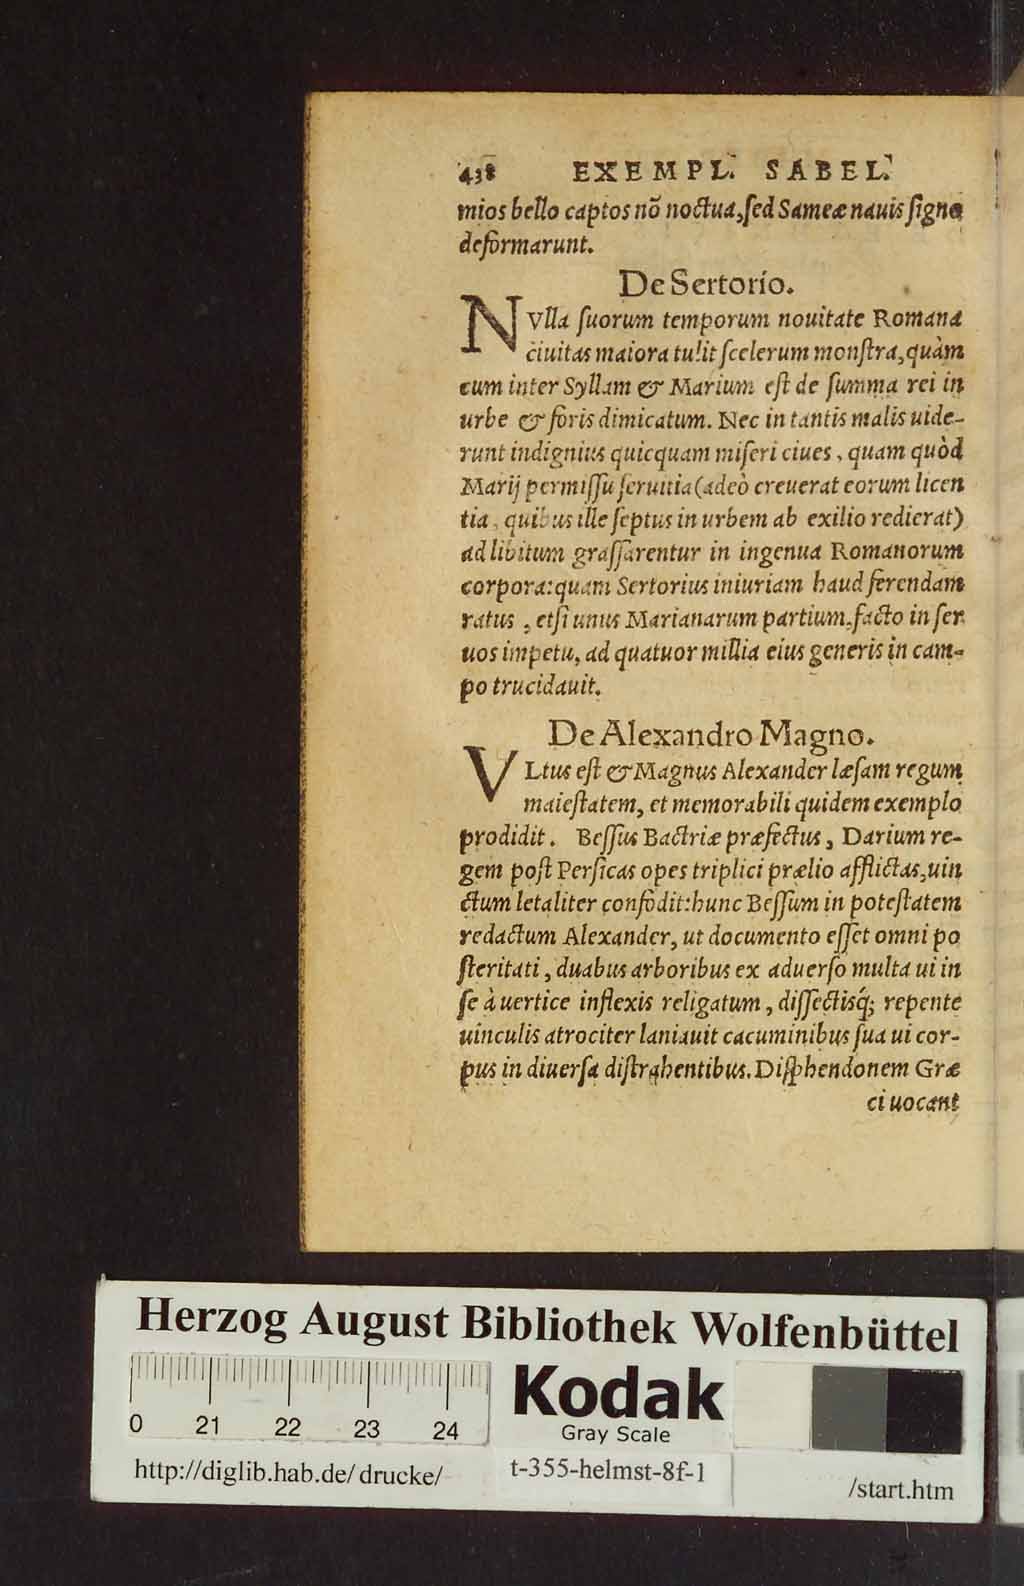 438 EXEMPL. SABEL.
mios bello captos nõ noctua, ſed Sameæ nauis ſigno
deformarunt.
De Sertorio.
NVlla ſuorum temporum nouitate Romana
ciuitas maiora tulit ſcelerum monſtra, quàm
cum inter Syllam & Marium eſt de ſumma rei in
urbe & foris dimicatum. Nec in tantis malis uide-
runt indignius quicquam miſeri ciues, quam quòd
Marij permiſſu ſeruitia (adeò creuerat eorum licen
tia, quibus ille ſeptus in urbem ab exilio redierat)
ad libitum graſſarentur in ingenua Romanorum
corpora: quam Sertorius iniuriam haud ferendam
ratus, etſi unus Marianarum partium, facto in ſer
uos impetu, ad quatuor millia eius generis in cam-
po trucidauit.
De Alexandro Magno.
VLtus eſt & Magnus Alexander læſam regum
maieſtatem, et memorabili quidem exemplo
prodidit. Beſſus Bactriæ præfectus, Darium re-
gem poſt Perſicas opes triplici prælio afflictas, uin
ctum letaliter confodit: hunc Beſſum in poteſtatem
redactum Alexander, ut documento eſſet omni po
ſteritati, duabus arboribus ex aduerſo multa ui in
ſe à uertice inflexis religatum, diſſectisq́; repente
uinculis atrociter laniauit cacuminibus ſua ui cor-
pus in diuerſa diſtrahentibus. Diſphendonem Græ
ci uocant
Herzog August Bibliothek Wolfenbüttel
0 21 22 23 24
Kodak
Gray Scale
http://diglib.hab.de/drucke/ t-355-helmst-8f-1 /start.htm